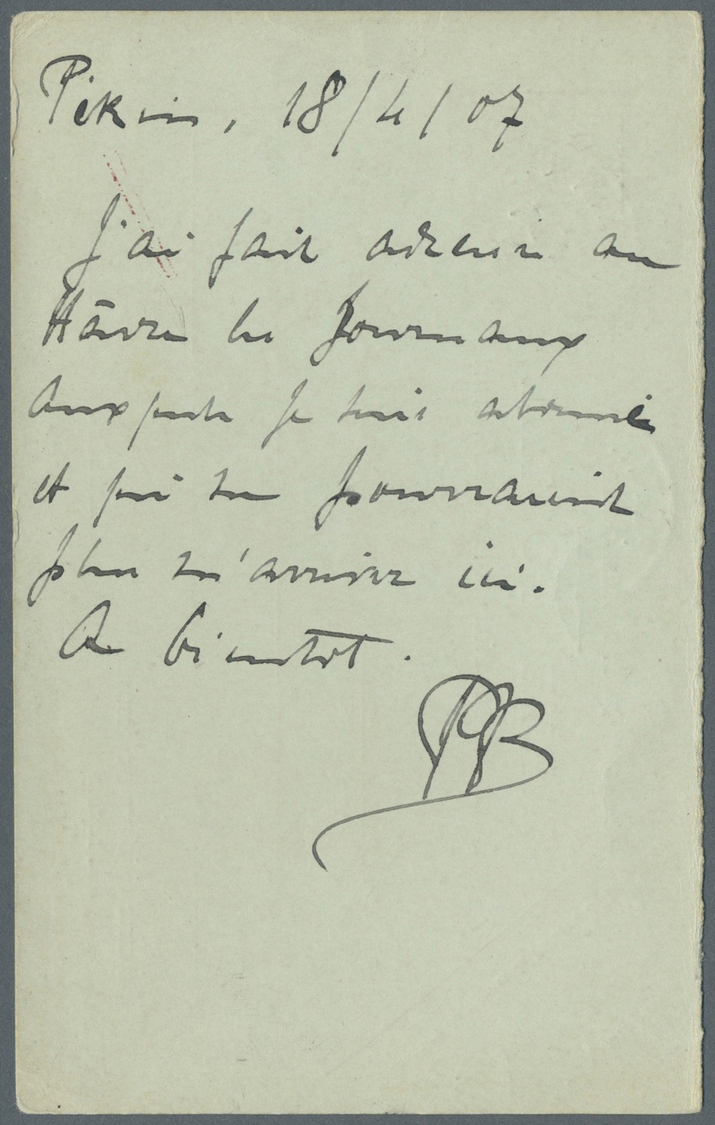 Pékin, 18/4/07
J'ai fait adresser au
Hâvre les Journaux
Auxquels je suis abonné
et qui ne pourraient
plus m'arriver ici.
A bientôt.
PB